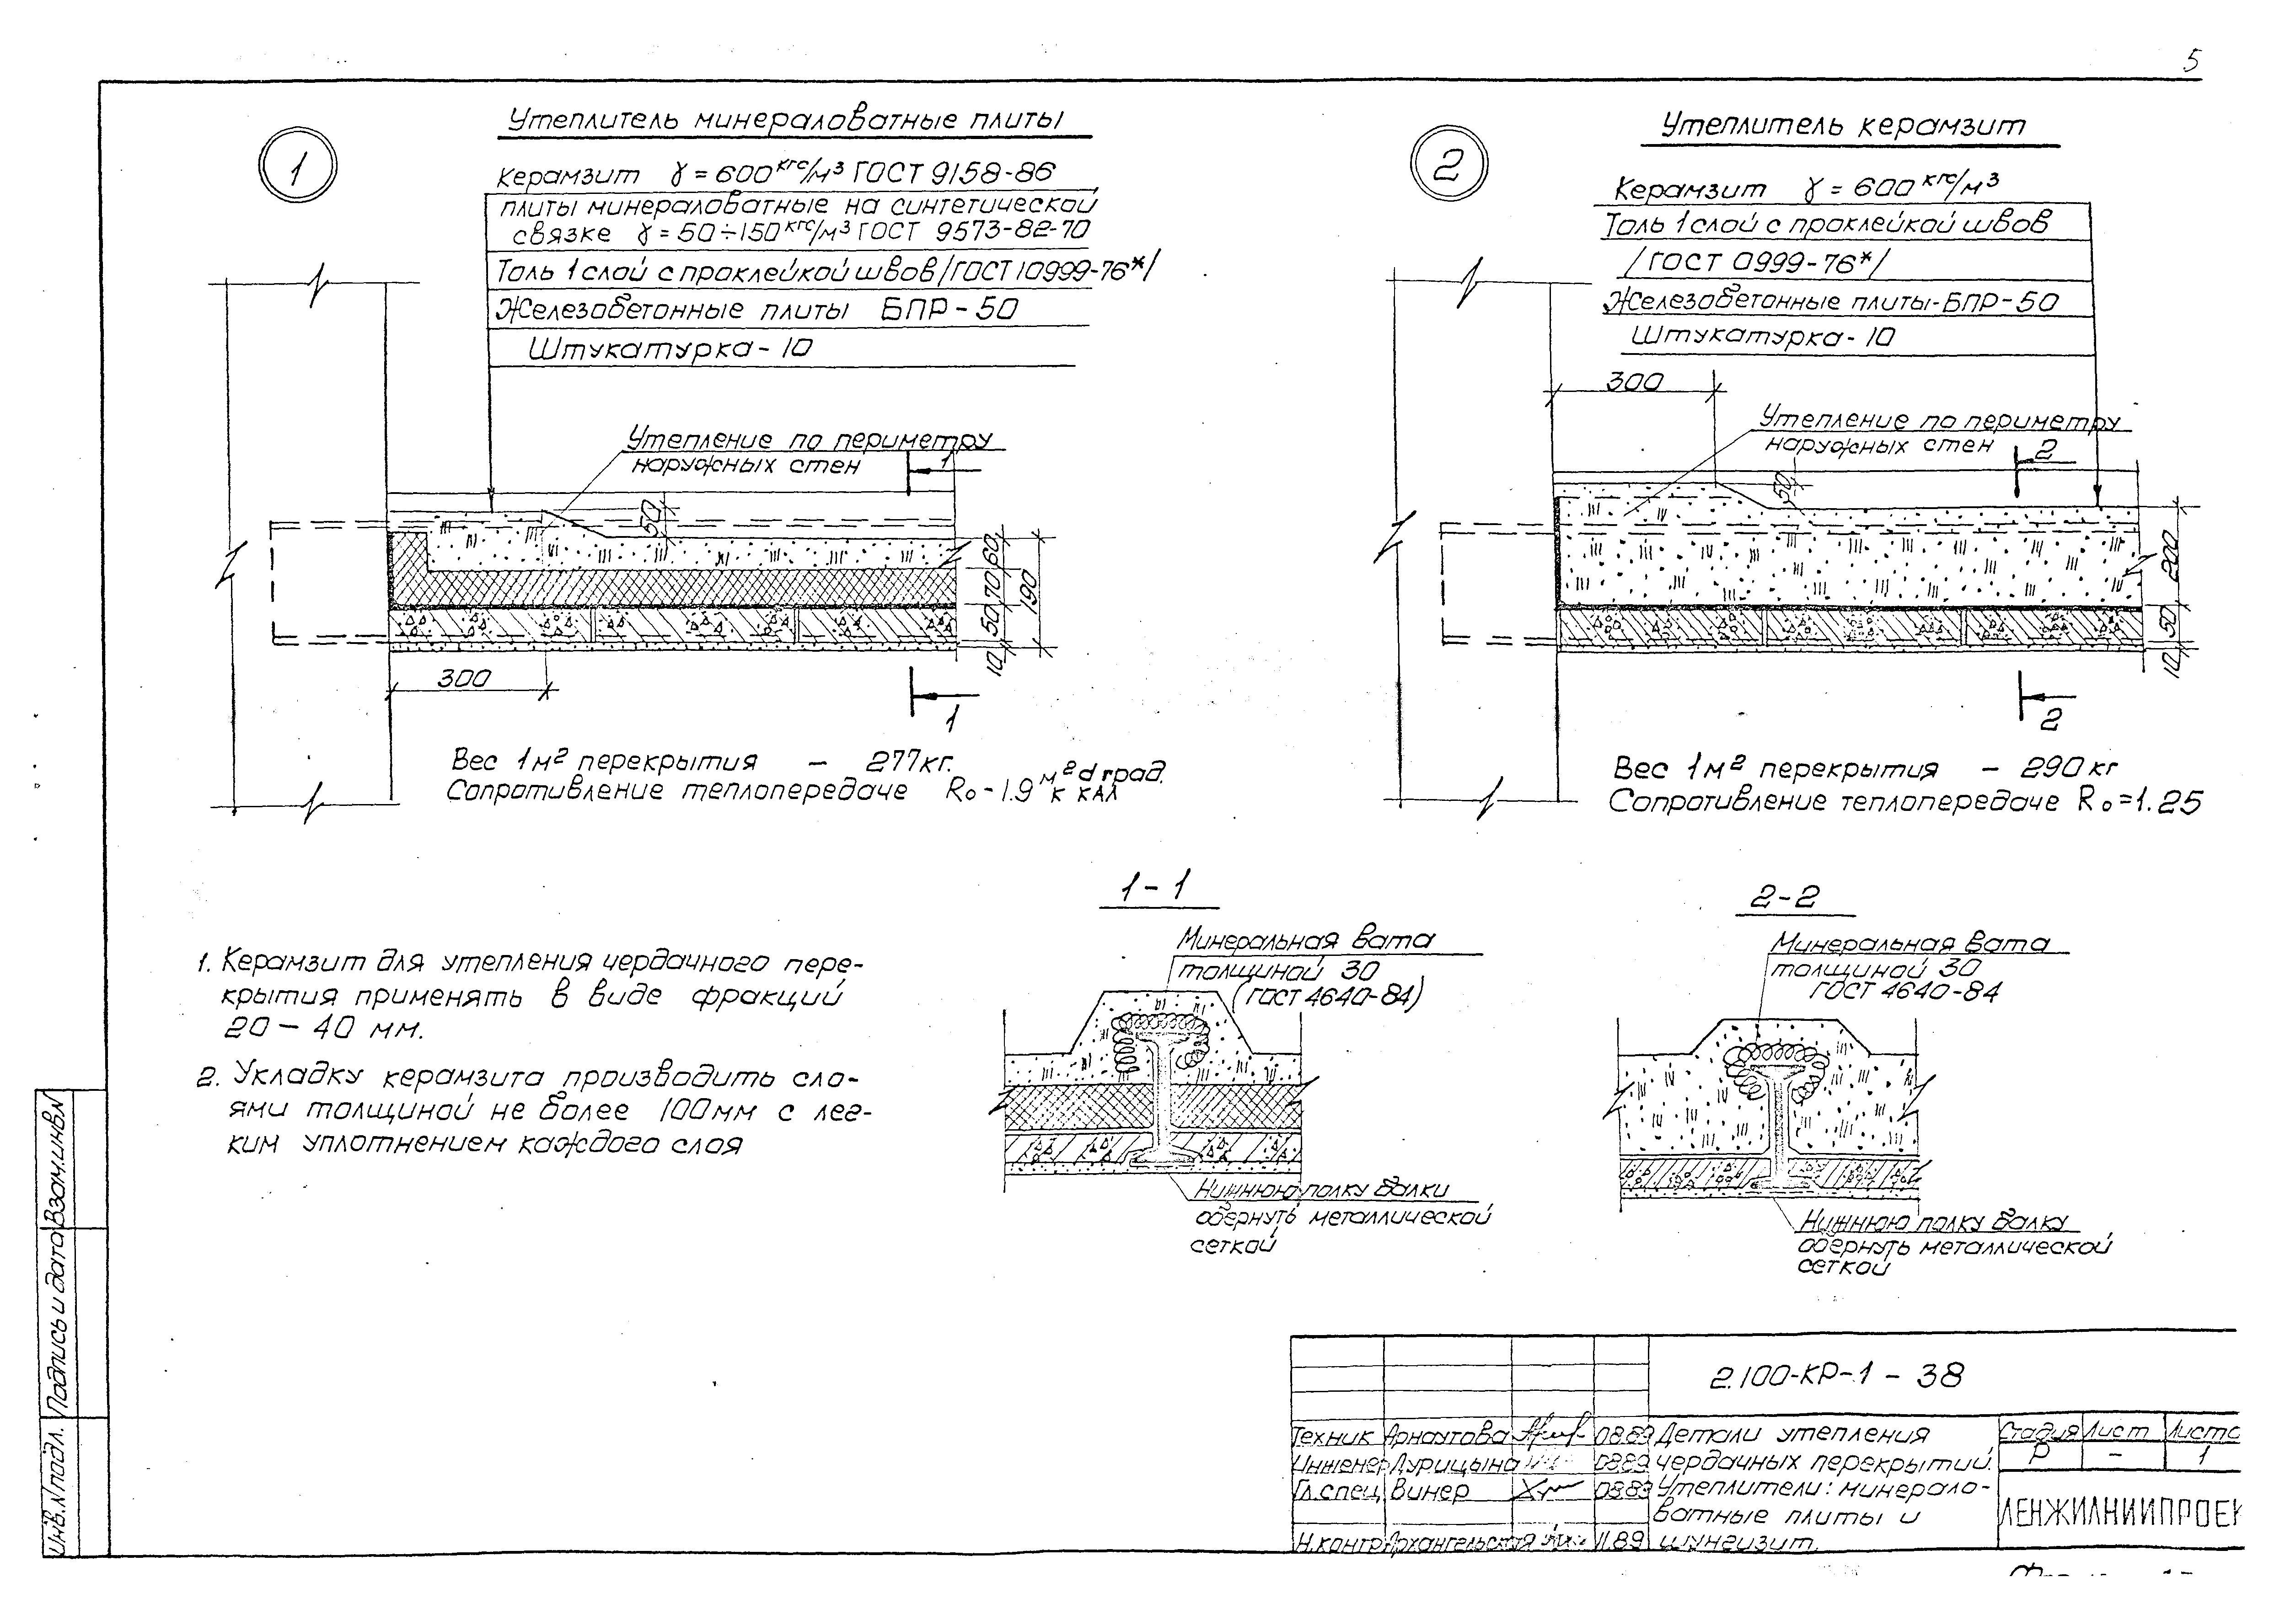 5
1
Утеплитель минераловатные плиты
Керамзит γ = 600 кгс/м³ ГОСТ 9158-86
плиты минераловатные на синтетической
связке γ = 50÷150 кгс/м³ ГОСТ 9573-82-70
Толь 1 слой с проклейкой швов /ГОСТ 10999-76*/
Железобетонные плиты БПР-50
Штукатурка-10
Утепление по периметру
наружных стен
1
50
60
70
50
10
190
300
1
Вес 1м² перекрытия – 277кг.
Сопротивление теплопередаче Ro-1.9 м² d град.
К КАЛ
2
Утеплитель керамзит
Керамзит γ = 600 кгс/м³
Толь 1 слой с проклейкой швов
/ГОСТ 0999-76*/
Железобетонные плиты-БПР-50
Штукатурка-10
300
Утепление по периметру
наружных стен
2
50
200
50
10
2
Вес 1м² перекрытия – 290кг
Сопротивление теплопередаче Ro=1.25
1. Керамзит для утепления чердачного пере-
крытия применять в виде фракций
20 – 40 мм.
2. Укладку керамзита производить сло-
ями толщиной не более 100мм с лег-
ким уплотнением каждого слоя
1-1
Минеральная вата
толщиной 30
(ГОСТ 4640-84)
Нижнюю полку балки
обернуть металлической
сеткой
2-2
Минеральная вата
толщиной 30
ГОСТ 4640-84
Нижнюю полку балку
обернуть металлической
сеткой
2.100-КР-1-38
Техник Арнаутова 08.89
Инженер Лурицына 08.89
Гл.спец. Винер 08.89
Н.контр. Архангельская 11.89
Детали утепления
чердачных перекрытий.
Утеплители: минерало-
ватные плиты и
шунгизит.
Стадия Лист Листо
Р – 1
ЛЕНЖИЛНИИПРОЕК
Инв.N подл. Подпись и дата Взам.инв.N